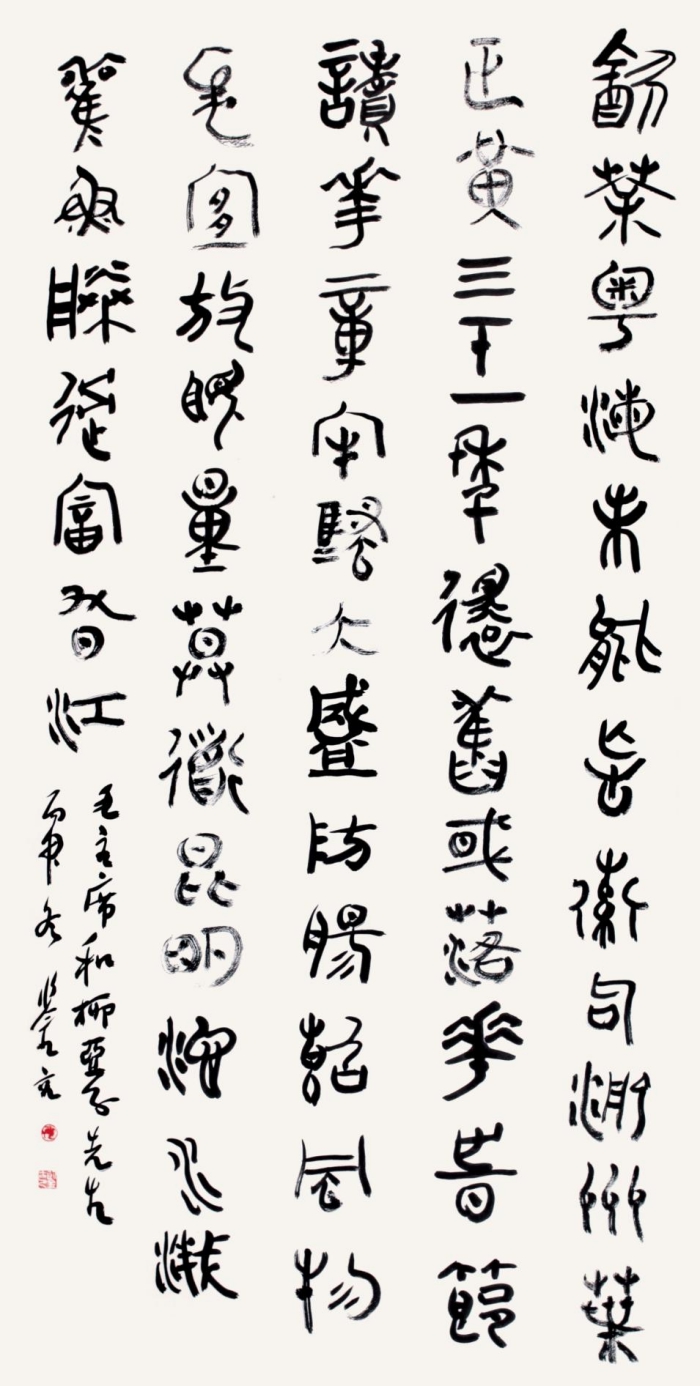 飲茶粵海未能忘索句渝州葉
正黃三十一年還舊或落花時節
讀華章牢騷大盛防腸斷風物
長宜放眼量莫道昆明池水淺
觀魚勝過富春江
毛主席和柳亞子先生
丙申冬